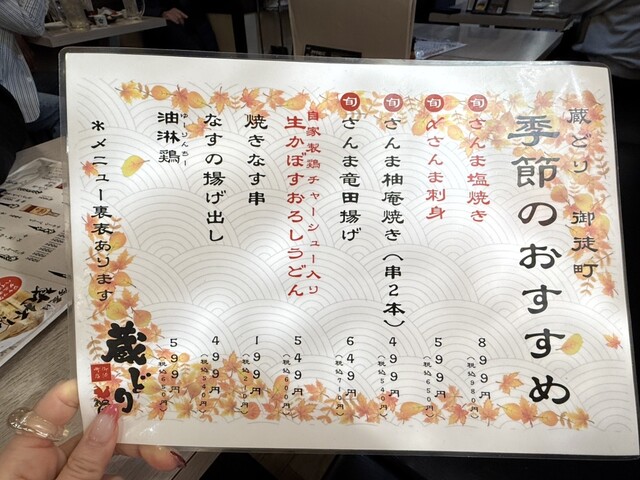 蔵どり 御徒町
季節のおすすめ
旬 さんま塩焼き 899円 (税込980円)
旬 〆さんま刺身 599円 (税込650円)
旬 さんま柚庵焼き(串2本) 499円 (税込540円)
旬 さんま竜田揚げ 649円 (税込710円)
自家製鶏チャーシュー入り
生かぼすおろしうどん 549円
焼きなす串 199円
なすの揚げ出し 499円 (税込540円)
ゆーりんちー
油淋鶏 599円 (税込650円)
*メニュー裏表あります
蔵どり